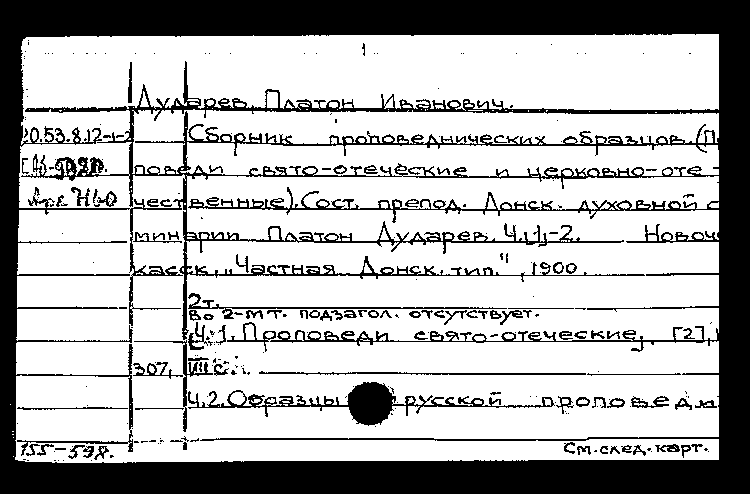 1
Дударев, Платон Иванович.
20.53.8.12-1-2 Сборник проповеднических образцов. (П
поведи свято-отеческие и церковно-оте-
чественные). Сост. препод. Донск. духовной с
минарии Платон Дударев. Ч.[1]-2. Новоче
касск, „Частная Донск. тип.", 1900.
2т.
Во 2-м т. подзагол. отсутствует.
Ч.1. Проповеди свято-отеческие. [2],
307, VIII с.
Ч.2. Образцы русской проповеди
155-59г. См. след. карт.